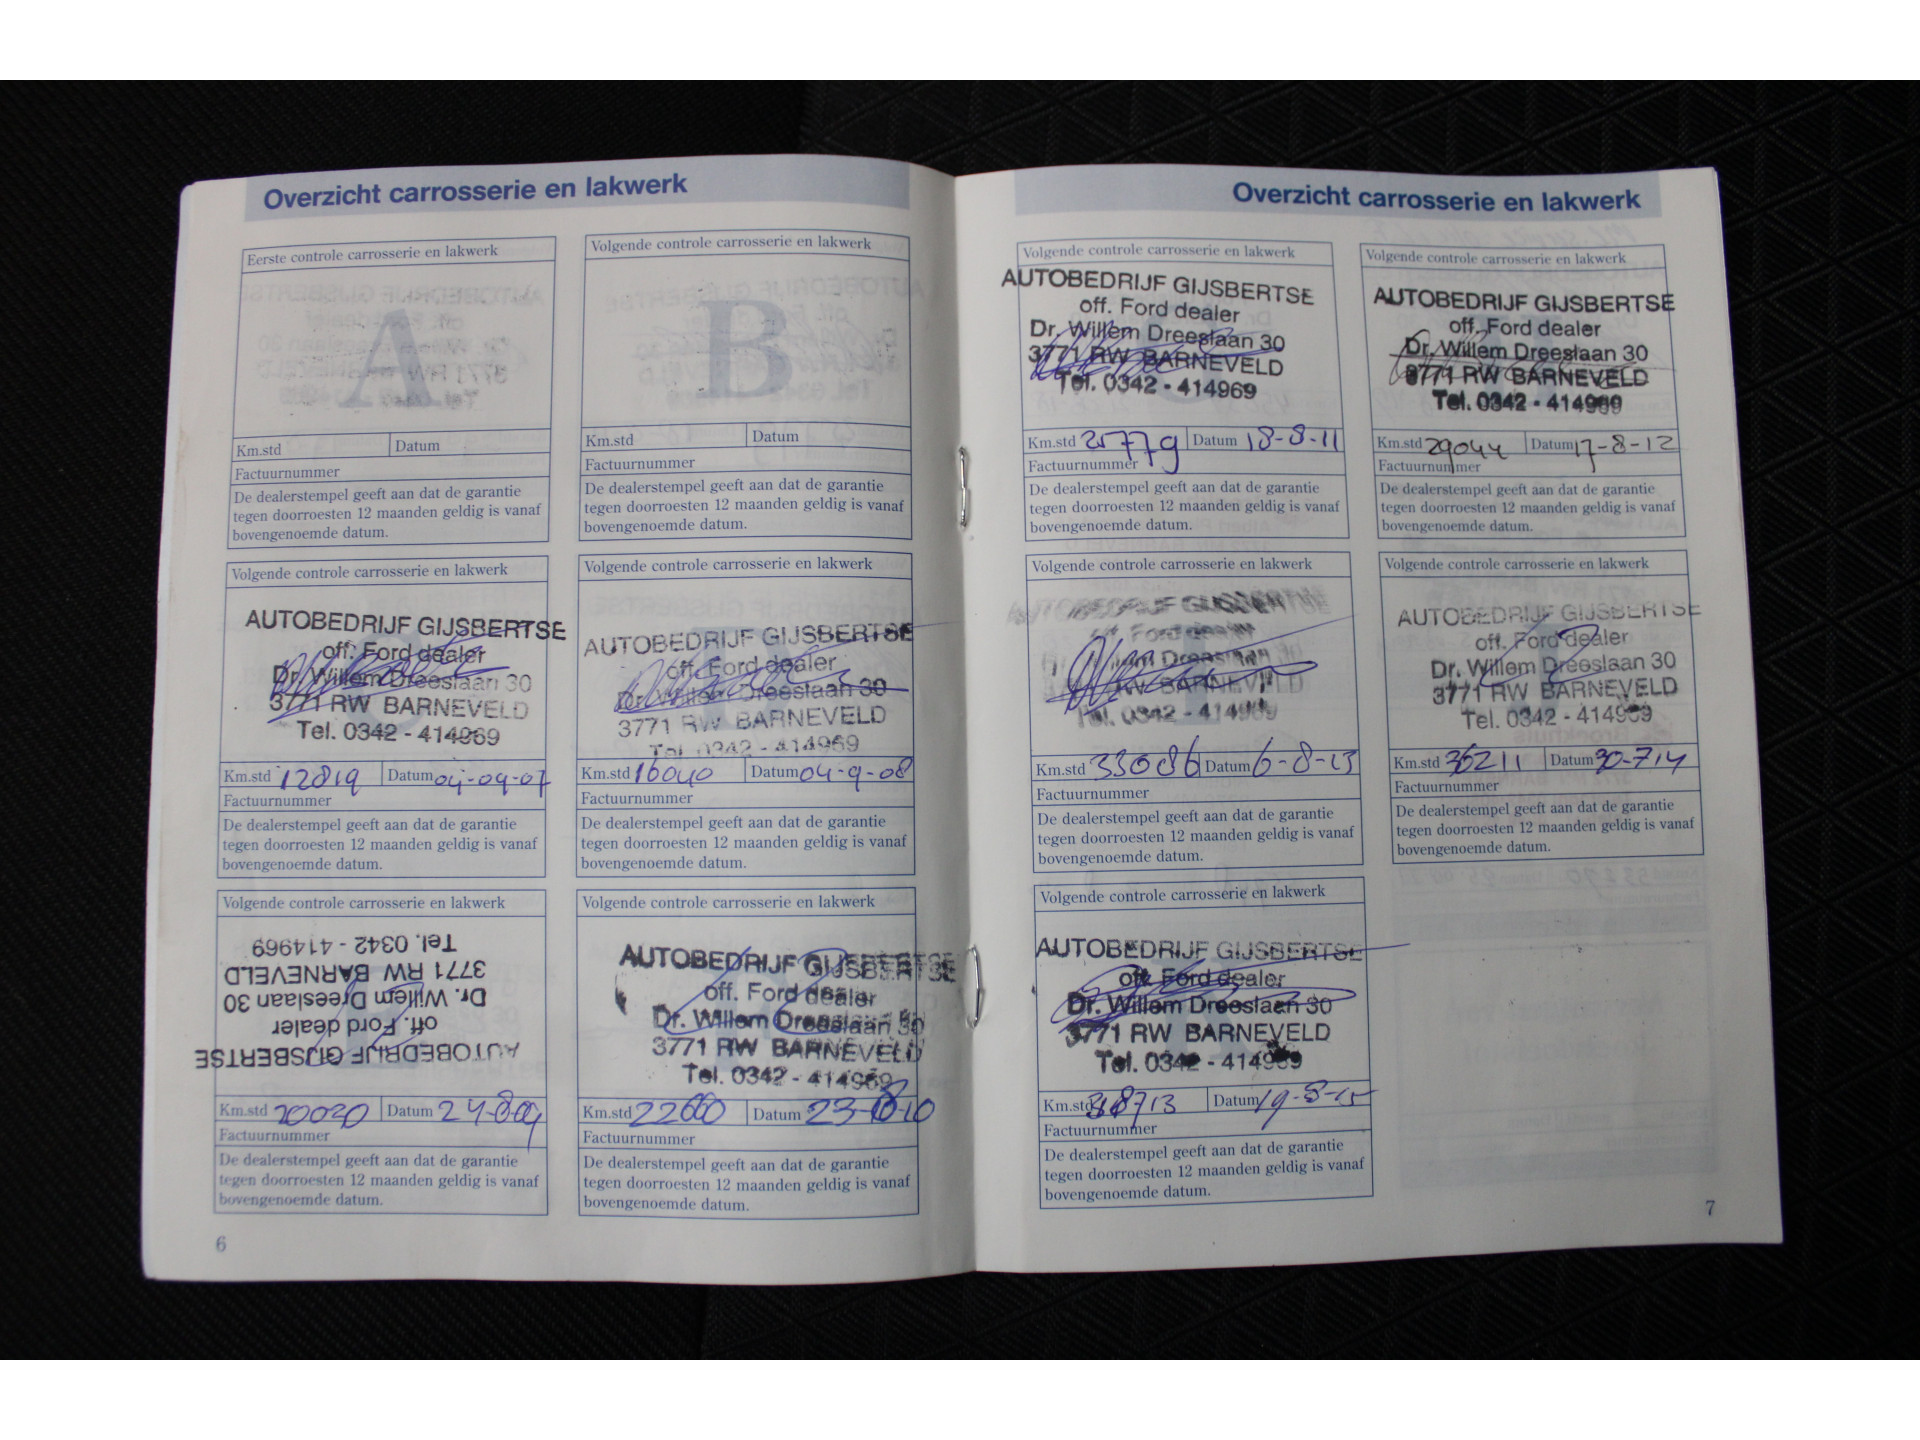 Overzicht carrosserie en lakwerk
Eerste controle carrosserie en lakwerk
A
Km.std
Datum
Factuurnummer
De dealerstempel geeft aan dat de garantie
tegen doorroesten 12 maanden geldig is vanaf
bovengenoemde datum.
Volgende controle carrosserie en lakwerk
B
Km.std
Datum
Factuurnummer
De dealerstempel geeft aan dat de garantie
tegen doorroesten 12 maanden geldig is vanaf
bovengenoemde datum.
Volgende controle carrosserie en lakwerk
AUTOBEDRIJF GIJSBERTSE
off. Ford dealer
Dr. Willem Dreeslaan 30
3771 RW BARNEVELD
Tel. 0342 - 414969
Km.std 12819 Datum 04-09-07
Factuurnummer
De dealerstempel geeft aan dat de garantie
tegen doorroesten 12 maanden geldig is vanaf
bovengenoemde datum.
Volgende controle carrosserie en lakwerk
AUTOBEDRIJF GIJSBERTSE
off. Ford dealer
Dr. Willem Dreeslaan 30
3771 RW BARNEVELD
Tel. 0342 - 414969
Km.std 16040 Datum 04-9-08
Factuurnummer
De dealerstempel geeft aan dat de garantie
tegen doorroesten 12 maanden geldig is vanaf
bovengenoemde datum.
Volgende controle carrosserie en lakwerk
AUTOBEDRIJF GIJSBERTSE
off. Ford dealer
Dr. Willem Dreeslaan 30
3771 RW BARNEVELD
Tel. 0342 - 414969
Km.std 20020 Datum 24-8-09
Factuurnummer
De dealerstempel geeft aan dat de garantie
tegen doorroesten 12 maanden geldig is vanaf
bovengenoemde datum.
Volgende controle carrosserie en lakwerk
AUTOBEDRIJF GIJSBERTSE
off. Ford dealer
Dr. Willem Dreeslaan 30
3771 RW BARNEVELD
Tel. 0342 - 414969
Km.std Datum
Factuurnummer
De dealerstempel geeft aan dat de garantie
tegen doorroesten 12 maanden geldig is vanaf
bovengenoemde datum.
6
Overzicht carrosserie en lakwerk
Volgende controle carrosserie en lakwerk
AUTOBEDRIJF GIJSBERTSE
off. Ford dealer
Dr. Willem Dreeslaan 30
3771 RW BARNEVELD
Tel. 0342 - 414969
Km.std 25779 Datum 18-8-11
Factuurnummer
De dealerstempel geeft aan dat de garantie
tegen doorroesten 12 maanden geldig is vanaf
bovengenoemde datum.
Volgende controle carrosserie en lakwerk
AUTOBEDRIJF GIJSBERTSE
off. Ford dealer
Dr. Willem Dreeslaan 30
3771 RW BARNEVELD
Tel. 0342 - 414969
Km.std 29044 Datum 17-8-12
Factuurnummer
De dealerstempel geeft aan dat de garantie
tegen doorroesten 12 maanden geldig is vanaf
bovengenoemde datum.
Volgende controle carrosserie en lakwerk
AUTOBEDRIJF GIJSBERTSE
off. Ford dealer
Willem Dreeslaan
RW BARNEVELD
Tel. 0342 - 414969
Km.std 33086 Datum 6-8-13
Factuurnummer
De dealerstempel geeft aan dat de garantie
tegen doorroesten 12 maanden geldig is vanaf
bovengenoemde datum.
Volgende controle carrosserie en lakwerk
AUTOBEDRIJF GIJSBERTSE
off. Ford dealer
Dr. Willem Dreeslaan 30
3771 RW BARNEVELD
Tel. 0342 - 414969
Km.std 36211 Datum 30-7-14
Factuurnummer
De dealerstempel geeft aan dat de garantie
tegen doorroesten 12 maanden geldig is vanaf
bovengenoemde datum.
Volgende controle carrosserie en lakwerk
AUTOBEDRIJF GIJSBERTSE
off. Ford dealer
Dr. Willem Dreeslaan 30
3771 RW BARNEVELD
Tel. 0342 - 414969
Km.std Datum 19-8-15
Factuurnummer
De dealerstempel geeft aan dat de garantie
tegen doorroesten 12 maanden geldig is vanaf
bovengenoemde datum.
7